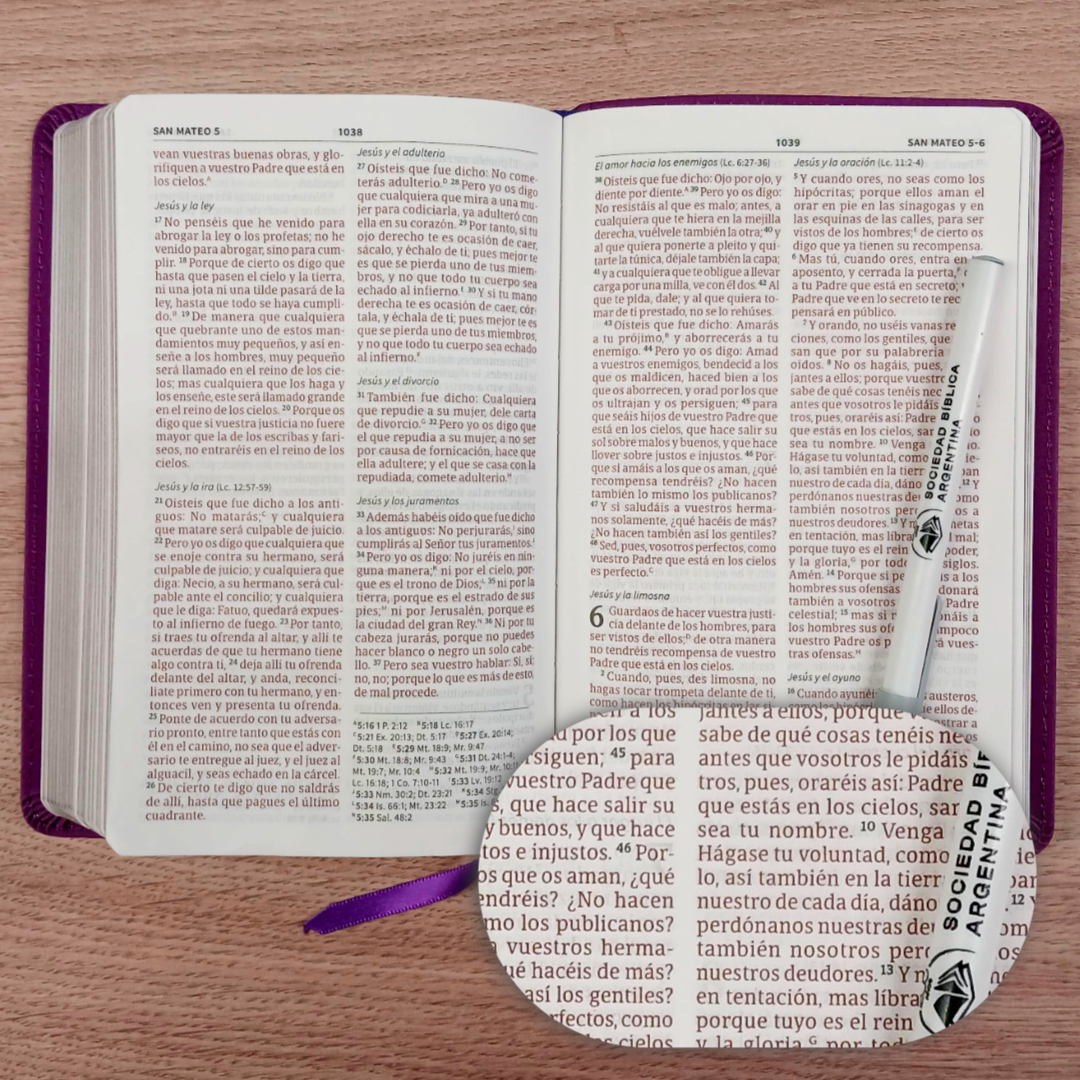 SAN MATEO 5
1038
vean vuestras buenas obras, y glo-
rifiquen a vuestro Padre que está en
los cielos.ᴬ
Jesús y la ley
17 No penséis que he venido para
abrogar la ley o los profetas; no he
venido para abrogar, sino para cum-
plir. 18 Porque de cierto os digo que
hasta que pasen el cielo y la tierra,
ni una jota ni una tilde pasará de la
ley, hasta que todo se haya cumpli-
do.ᴮ 19 De manera que cualquiera
que quebrante uno de estos man-
damientos muy pequeños, y así en-
señe a los hombres, muy pequeño
será llamado en el reino de los cie-
los; mas cualquiera que los haga y
los enseñe, este será llamado grande
en el reino de los cielos. 20 Porque os
digo que si vuestra justicia no fuere
mayor que la de los escribas y fari-
seos, no entraréis en el reino de los
cielos.
Jesús y la ira (Lc. 12:57-59)
21 Oísteis que fue dicho a los anti-
guos: No matarás;ᶜ y cualquiera
que matare será culpable de juicio.
22 Pero yo os digo que cualquiera que
se enoje contra su hermano, será
culpable de juicio; y cualquiera que
diga: Necio, a su hermano, será cul-
pable ante el concilio; y cualquiera
que le diga: Fatuo, quedará expues-
to al infierno de fuego. 23 Por tanto,
si traes tu ofrenda al altar, y allí te
acuerdas de que tu hermano tiene
algo contra ti, 24 deja allí tu ofrenda
delante del altar, y anda, reconcí-
liate primero con tu hermano, y en-
tonces ven y presenta tu ofrenda.
25 Ponte de acuerdo con tu adversa-
rio pronto, entre tanto que estás con
él en el camino, no sea que el adver-
sario te entregue al juez, y el juez al
alguacil, y seas echado en la cárcel.
26 De cierto te digo que no saldrás
de allí, hasta que pagues el último
cuadrante.
Jesús y el adulterio
27 Oísteis que fue dicho: No come-
terás adulterio.ᴰ 28 Pero yo os digo
que cualquiera que mira a una mu-
jer para codiciarla, ya adulteró con
ella en su corazón. 29 Por tanto, si tu
ojo derecho te es ocasión de caer,
sácalo, y échalo de ti; pues mejor te
es que se pierda uno de tus miem-
bros, y no que todo tu cuerpo sea
echado al infierno.ᴱ 30 Y si tu mano
derecha te es ocasión de caer, cór-
tala, y échala de ti; pues mejor te es
que se pierda uno de tus miembros,
y no que todo tu cuerpo sea echado
al infierno.ꟳ
Jesús y el divorcio
31 También fue dicho: Cualquiera
que repudie a su mujer, dele carta
de divorcio.ᴳ 32 Pero yo os digo que
el que repudia a su mujer, a no ser
por causa de fornicación, hace que
ella adultere; y el que se casa con la
repudiada, comete adulterio.ᴴ
Jesús y los juramentos
33 Además habéis oído que fue dicho
a los antiguos: No perjurarás,ᴵ sino
cumplirás al Señor tus juramentos.ᴶ
34 Pero yo os digo: No juréis en nin-
guna manera;ᴷ ni por el cielo, por-
que es el trono de Dios;ᴸ 35 ni por la
tierra, porque es el estrado de sus
pies;ᴹ ni por Jerusalén, porque es
la ciudad del gran Rey.ᴺ 36 Ni por tu
cabeza jurarás, porque no puedes
hacer blanco o negro un solo cabe-
llo. 37 Pero sea vuestro hablar: Sí, sí;
no, no; porque lo que es más de esto,
de mal procede.
ᴬ5:16 1 P. 2:12 ᴮ5:18 Lc. 16:17
ᶜ5:21 Ex. 20:13; Dt. 5:17 ᴰ5:27 Ex. 20:14;
Dt. 5:18 ᴱ5:29 Mt. 18:9; Mr. 9:47
ꟳ5:30 Mt. 18:8; Mr. 9:43 ᴳ5:31 Dt. 24:1-4;
Mt. 19:7; Mr. 10:4 ᴴ5:32 Mt. 19:9; Mr. 10:
Lc. 16:18; 1 Co. 7:10-11 ᴵ5:33 Lv. 19:12
ᴶ5:33 Nm. 30:2; Dt. 23:21 ᴷ5:34 Stg
ᴸ5:34 Is. 66:1; Mt. 23:22 ᴹ5:35 Is.
ᴺ5:35 Sal. 48:2
1039
SAN MATEO 5-6
El amor hacia los enemigos (Lc. 6:27-36)
38 Oísteis que fue dicho: Ojo por ojo, y
diente por diente.ᴬ 39 Pero yo os digo:
No resistáis al que es malo; antes, a
cualquiera que te hiera en la mejilla
derecha, vuélvele también la otra; 40 y
al que quiera ponerte a pleito y qui-
tarte la túnica, déjale también la capa;
41 y a cualquiera que te obligue a llevar
carga por una milla, ve con él dos. 42 Al
que te pida, dale; y al que quiera to-
mar de ti prestado, no se lo rehúses.
43 Oísteis que fue dicho: Amarás
a tu prójimo,ᴮ y aborrecerás a tu
enemigo. 44 Pero yo os digo: Amad
a vuestros enemigos, bendecid a los
que os maldicen, haced bien a los
que os aborrecen, y orad por los que
os ultrajan y os persiguen; 45 para
que seáis hijos de vuestro Padre que
está en los cielos, que hace salir su
sol sobre malos y buenos, y que hace
llover sobre justos e injustos. 46 Por-
que si amáis a los que os aman, ¿qué
recompensa tendréis? ¿No hacen
también lo mismo los publicanos?
47 Y si saludáis a vuestros herma-
nos solamente, ¿qué hacéis de más?
¿No hacen también así los gentiles?
48 Sed, pues, vosotros perfectos, como
vuestro Padre que está en los cielos
es perfecto.ᶜ
Jesús y la limosna
6 Guardaos de hacer vuestra justi-
cia delante de los hombres, para
ser vistos de ellos;ᴰ de otra manera
no tendréis recompensa de vuestro
Padre que está en los cielos.
2 Cuando, pues, des limosna, no
hagas tocar trompeta delante de ti,
como hacen los hipócritas en las si-
Jesús y la oración (Lc. 11:2-4)
5 Y cuando ores, no seas como los
hipócritas; porque ellos aman el
orar en pie en las sinagogas y en
las esquinas de las calles, para ser
vistos de los hombres;ᴱ de cierto os
digo que ya tienen su recompensa.
6 Mas tú, cuando ores, entra en
aposento, y cerrada la puerta,ꟳ
a tu Padre que está en secreto;
Padre que ve en lo secreto te rec
pensará en público.
7 Y orando, no uséis vanas re
ciones, como los gentiles, que
san que por su palabrería
oídos. 8 No os hagáis, pues,
jantes a ellos; porque vuestr
sabe de qué cosas tenéis nec
antes que vosotros le pidáis
tros, pues, oraréis así: Padre
que estás en los cielos, san
sea tu nombre. 10 Venga
Hágase tu voluntad, como
lo, así también en la tierr
nuestro de cada día, dáno 12 Y
perdónanos nuestras de omo
también nosotros per
nuestros deudores. 13 Y n metas
en tentación, mas líbra l mal;
porque tuyo es el rein poder,
y la gloria,ᴳ por todo siglos.
Amén. 14 Porque si pe is a los
hombres sus ofensas donará
también a vosotros Padre
celestial; 15 mas si n onáis a
los hombres sus ofe ampoco
vuestro Padre os p á vues-
tras ofensas.ᴴ
Jesús y el ayuno
16 Cuando ayunéi austeros,
que ellos de-
ostrar a
SOCIEDAD BÍBLICA
ARGENTINA
en a los
d por los que
rsiguen; 45 para
vuestro Padre que
s, que hace salir su
y buenos, y que hace
tos e injustos. 46 Por-
os que os aman, ¿qué
endréis? ¿No hacen
mo los publicanos?
a vuestros herma-
ué hacéis de más?
así los gentiles?
rfectos, como
los cielos
jantes a ellos; porque v
sabe de qué cosas tenéis ne
antes que vosotros le pidáis
tros, pues, oraréis así: Padre
que estás en los cielos, sar
sea tu nombre. 10 Venga
Hágase tu voluntad, como
lo, así también en la tierr
nuestro de cada día, dáno 12 Y
perdónanos nuestras de
también nosotros per
nuestros deudores. 13 Y n
en tentación, mas líbra
porque tuyo es el rein
y la gloria,ᴳ por tod
SOCIEDAD BÍB
ARGENTINA